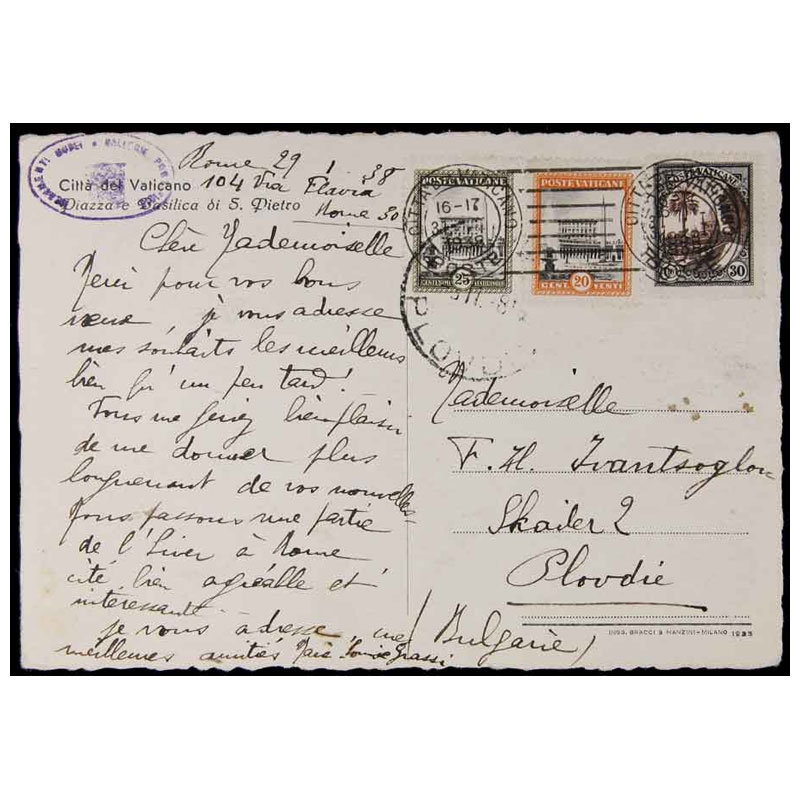 MONUMENTI MUSEI
Rome 29 1 38
Città del Vaticano 104 Via Flavia
Piazza e Basilica di S. Pietro Rome 30
Chère Mademoiselle
Merci pour vos bons
vœux je vous adresse
mes souhaits les meilleurs
bien qu'un peu tard!
Vous me feriez bien plaisir
de me donner plus
longuement de vos nouvelles
Nous passons une partie
de l'hiver à Rome
cité bien agréable et
intéressante.
je vous adresse mes
meilleures amitiés Marie Louise Grassi
POSTE VATICANE
25
CENTESIMI
POSTE VATICANE
20
CENT. VENTI
POSTE VATICANE
30
CITTÀ VATICANO
16-17
1938
PLOVDIV
Mademoiselle
F. H. Ivantsoglou
Skailer 2
Plovdiv
(Bulgarie)
INGG. BRACCI & MANZINI-MILANO 1935